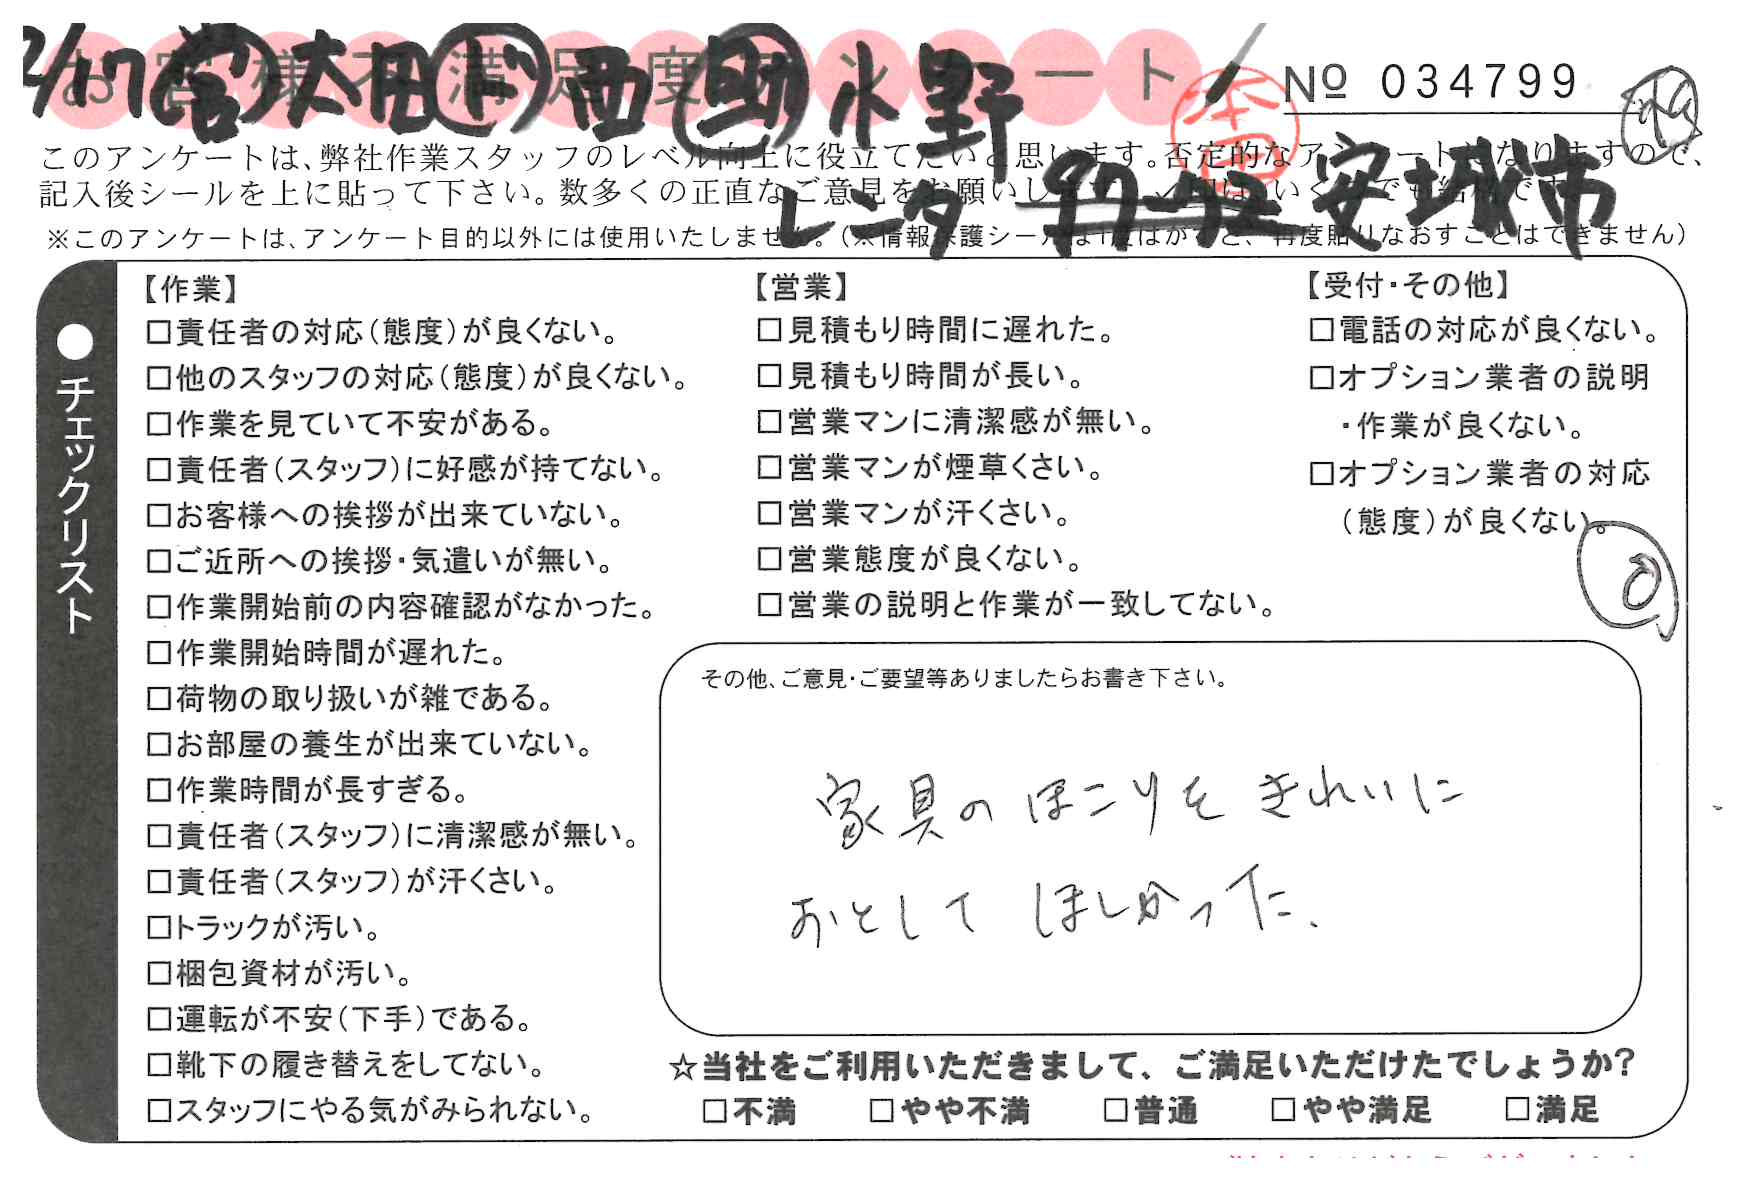 お客様不満足度アンケート
2/17 営 太田 ド 西 助 水野
№ 034799
このアンケートは、弊社作業スタッフのレベル向上に役立てたいと思います。否定的なアンケートになりますので、
記入後シールを上に貼って下さい。数多くの正直なご意見をお願いします。
レンタ 安城市
※このアンケートは、アンケート目的以外には使用いたしません。(※情報保護シールは1度はがすと、再度貼りなおすことはできません)
●チェックリスト
【作業】
□責任者の対応(態度)が良くない。
□他のスタッフの対応(態度)が良くない。
□作業を見ていて不安がある。
□責任者(スタッフ)に好感が持てない。
□お客様への挨拶が出来ていない。
□ご近所への挨拶・気遣いが無い。
□作業開始前の内容確認がなかった。
□作業開始時間が遅れた。
□荷物の取り扱いが雑である。
□お部屋の養生が出来ていない。
□作業時間が長すぎる。
□責任者(スタッフ)に清潔感が無い。
□責任者(スタッフ)が汗くさい。
□トラックが汚い。
□梱包資材が汚い。
□運転が不安(下手)である。
□靴下の履き替えをしてない。
□スタッフにやる気がみられない。
【営業】
□見積もり時間に遅れた。
□見積もり時間が長い。
□営業マンに清潔感が無い。
□営業マンが煙草くさい。
□営業マンが汗くさい。
□営業態度が良くない。
□営業の説明と作業が一致してない。
【受付・その他】
□電話の対応が良くない。
□オプション業者の説明
・作業が良くない。
□オプション業者の対応
(態度)が良くない。
その他、ご意見・ご要望等ありましたらお書き下さい。
家具のほこりをきれいに
おとしてほしかった.
☆当社をご利用いただきまして、ご満足いただけたでしょうか?
□不満 □やや不満 □普通 □やや満足 □満足